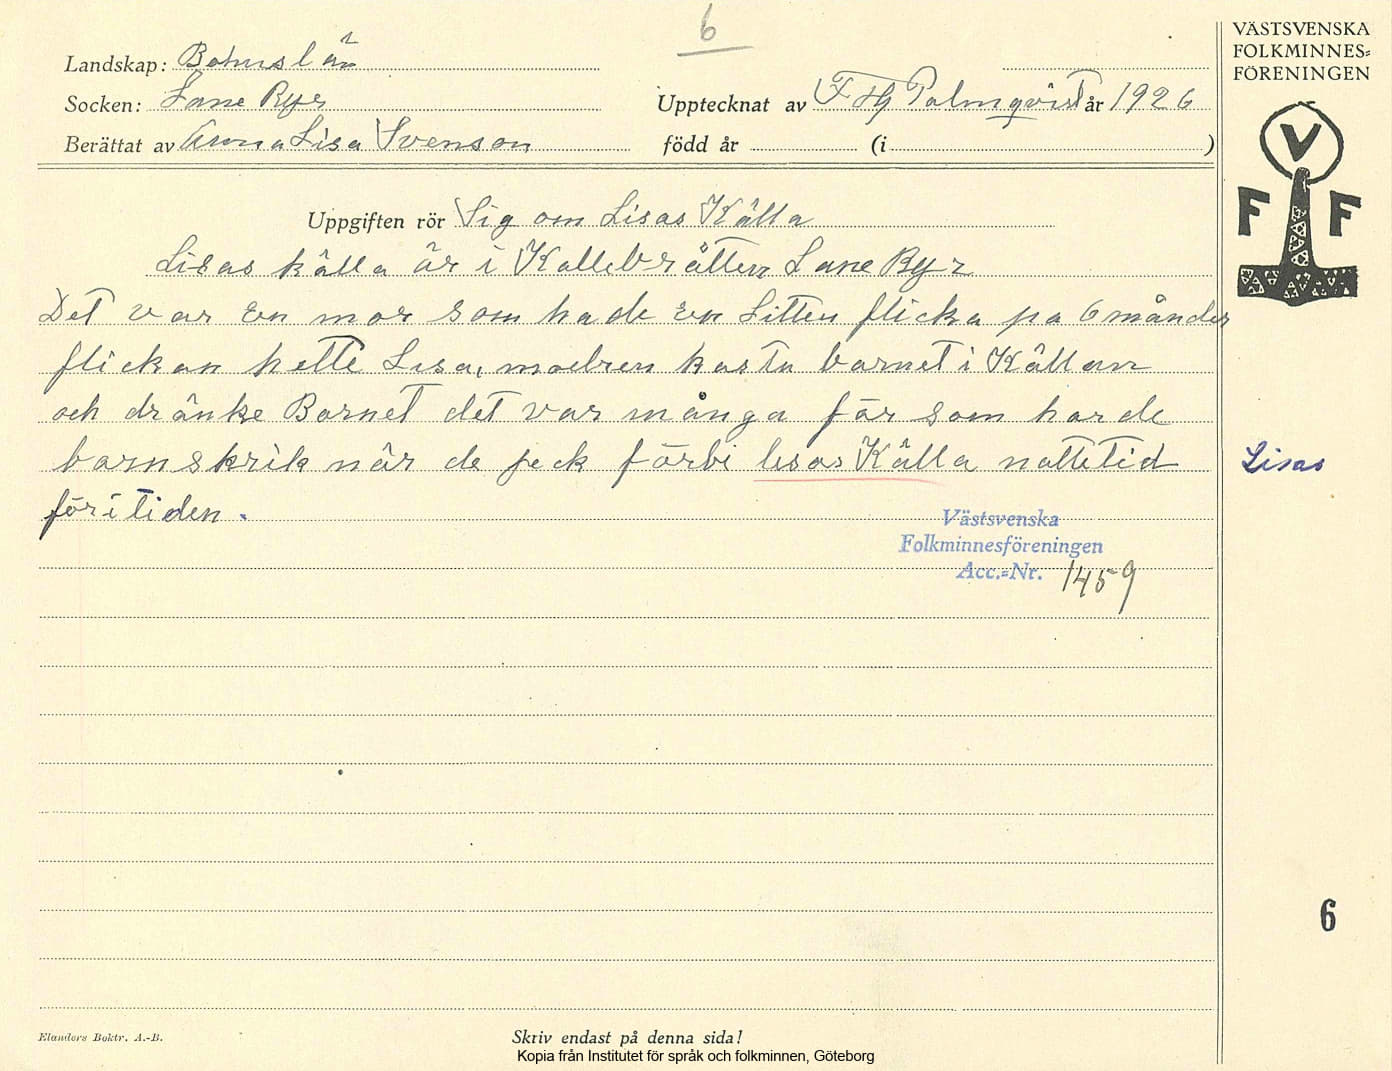 6
VÄSTSVENSKA
FOLKMINNES=
FÖRENINGEN
V
F F
Landskap: Bohuslän
Socken: Lane Ryr
Upptecknat av F Hj Palmqvist år 1926
Berättat av Anna Lisa Svenson
född år (i )
Uppgiften rör Sig om Lisas Källa
Lisas källa är i Kallebråtten Lane Ryr
Det var en mor som hade en Litten flicka pa 6 månder
flickan hette Lisa, modren kasta barnet i Källan
och dränke Barnet det var många för som harde
barnskrik när de jeck förbi lisas Källa nattetid
för i tiden.
Lisas
Västsvenska
Folkminnesföreningen
Acc.=Nr. 1459
6
Elanders Boktr. A.-B.
Skriv endast på denna sida!
Kopia från Institutet för språk och folkminnen, Göteborg